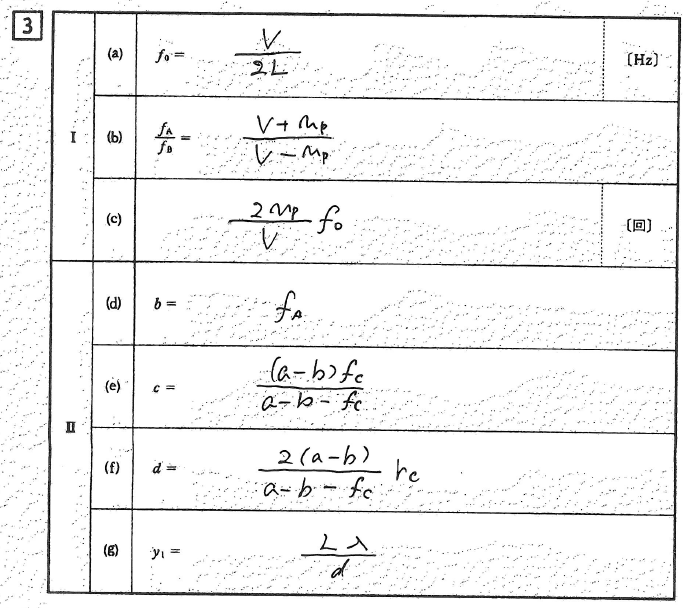 3
I (a) f₀ = V / 2L 〔Hz〕
(b) f_A / f_B = V + u_P / V − u_P
(c) 2u_P / V f₀ 〔回〕
II (d) b = f_A
(e) c = (a−b)f_C / a−b−f_C
(f) d = 2(a−b) / a−b−f_C r_C
(g) y₁ = Lλ / d